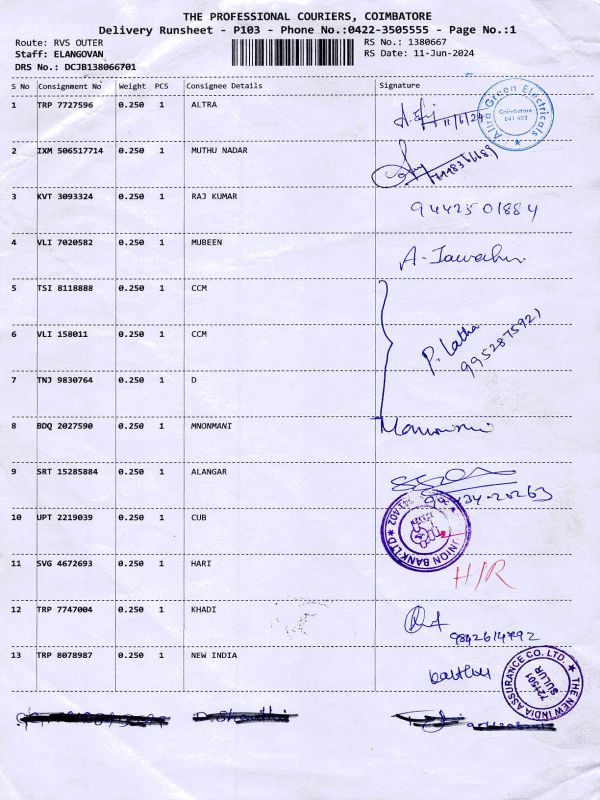 THE PROFESSIONAL COURIERS, COIMBATORE
Delivery Runsheet - P103 - Phone No.:0422-3505555 - Page No.:1
Route: RVS OUTER
Staff: ELANGOVAN
DRS No.: DCJB138066701
RS No.: 1380667
RS Date: 11-Jun-2024
S No Consignment No Weight PCS Consignee Details Signature
1 TRP 7727596 0.250 1 ALTRA 11/6/24
Altra Green Electricals
Coimbatore
641 402
2 IXM 506517714 0.250 1 MUTHU NADAR
3 KVT 3093324 0.250 1 RAJ KUMAR 9442501884
4 VLI 7020582 0.250 1 MUBEEN A. Jawahar
5 TSI 8118888 0.250 1 CCM
6 VLI 158011 0.250 1 CCM P. Latha
9952875921
7 TNJ 9830764 0.250 1 D
8 BDQ 2027590 0.250 1 MNONMANI
9 SRT 15285884 0.250 1 ALANGAR
10 UPT 2219039 0.250 1 CUB
UNION BANK LTD 641402
11 SVG 4672693 0.250 1 HARI H/R
12 TRP 7747004 0.250 1 KHADI
9842614792
13 TRP 8078987 0.250 1 NEW INDIA
THE NEW INDIA ASSURANCE CO. LTD.
721501
SULUR